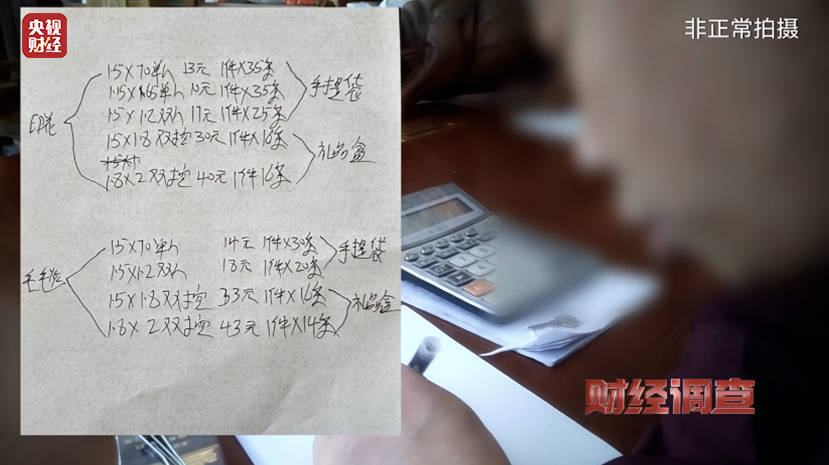 央视财经
非正常拍摄
印花
1.5×70单人 13元 1件×35条
1.15×1.65单人 10元 1件×35条
1.5×1.2双人 17元 1件×25条
手提袋
1.5×1.8双控 30元 1件×16条
1.8×2双控 40元 1件16条
礼品盒
毛毛
1.5×70单人 14元 1件×30条
1.5×1.2双人 18元 1件×20条
手提袋
1.5×1.8双控 33元 1件×16条
1.8×2双控 43元 1件×14条
礼品盒
财经调查